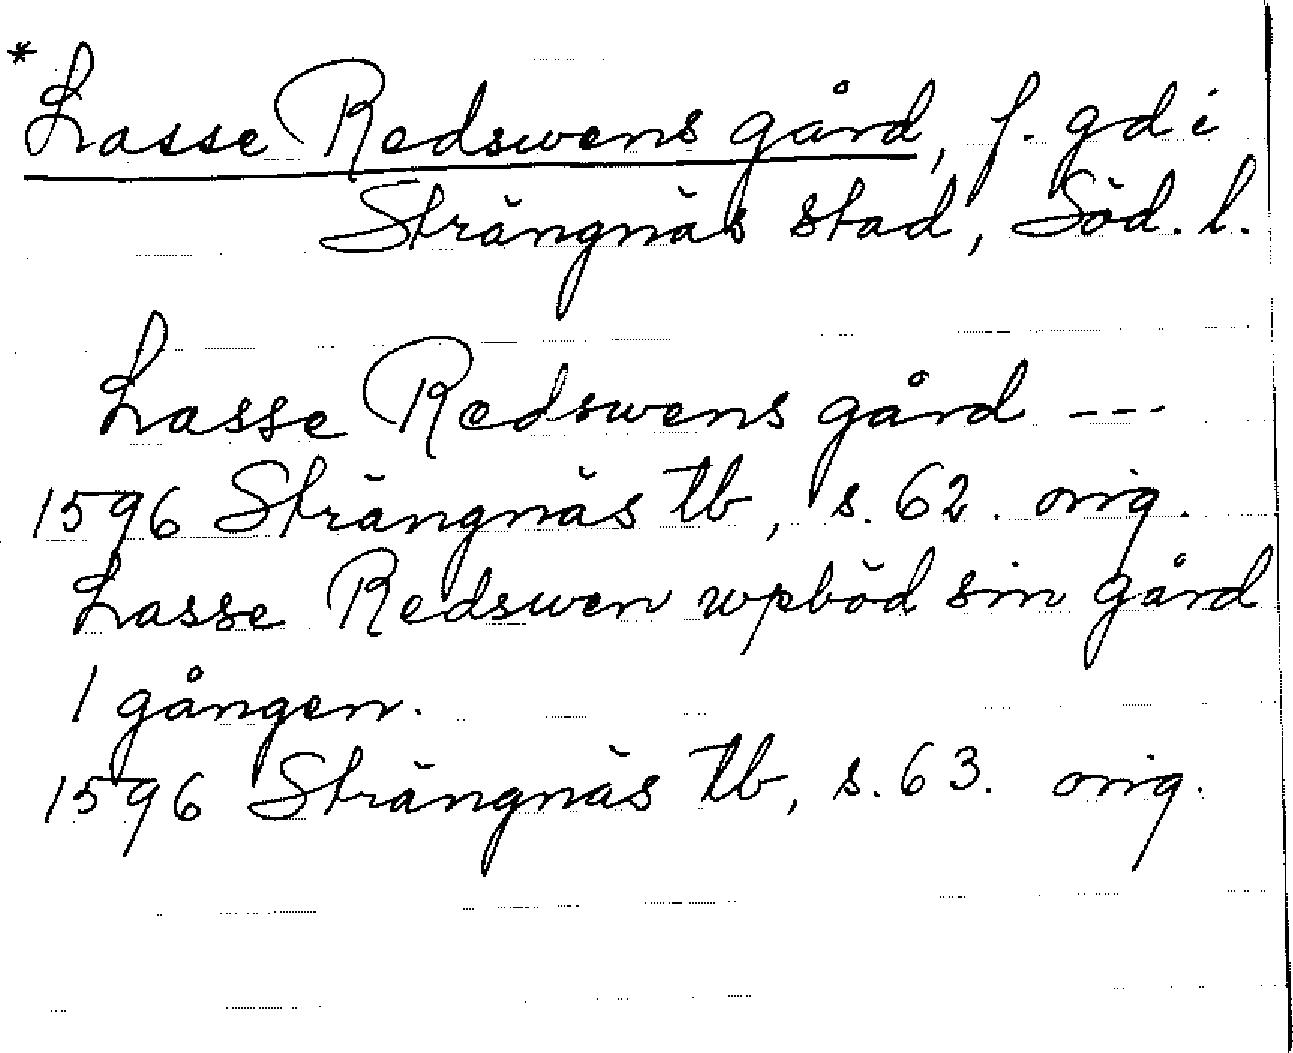 *Lasse Redswens gård, f. gd i
Strängnäs stad, Söd. l.
Lasse Redswens gård ---
1596 Strängnäs tb, s. 62. orig.
Lasse Redswen wpböd sin gård
1 gången.
1596 Strängnäs tb, s. 63. orig.